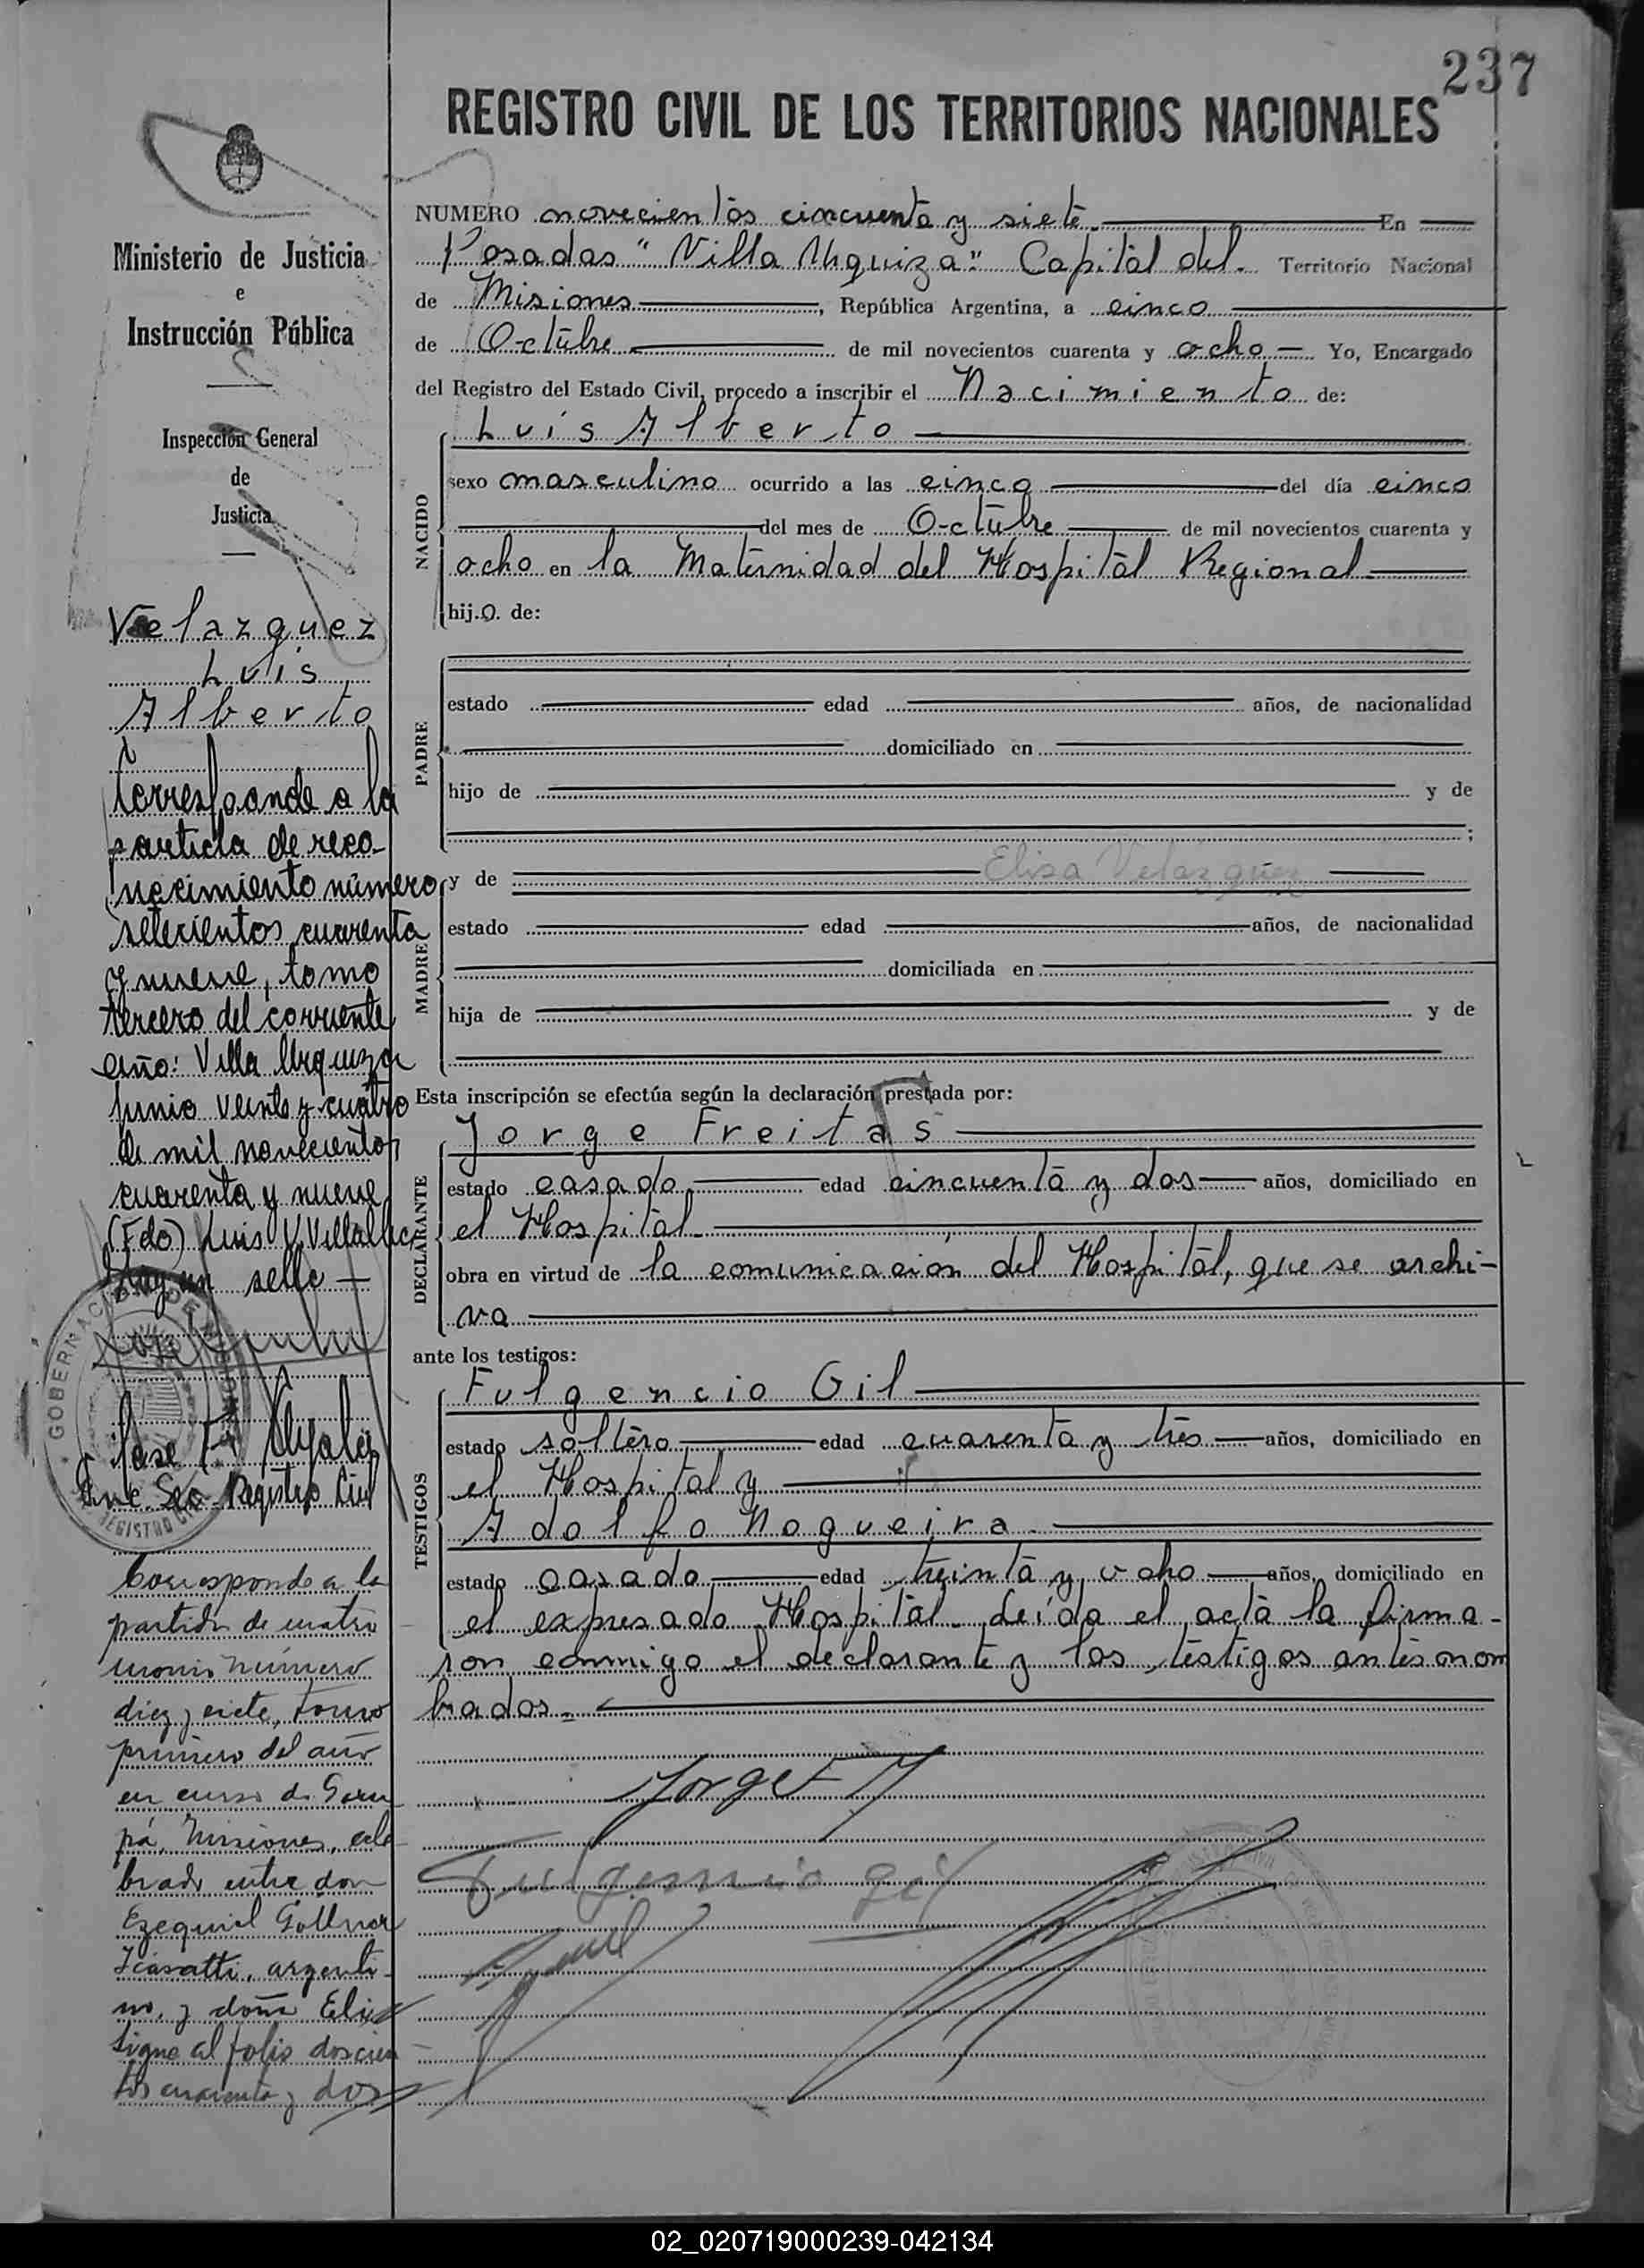 237
REGISTRO CIVIL DE LOS TERRITORIOS NACIONALES
Ministerio de Justicia
e
Instrucción Pública
Inspección General
de
Justicia
Velazquez
Luis
Alberto
Corresponde a la
partida de reco-
nocimiento número
setecientos cuarenta
y nueve, tomo
tercero del corriente
año: Villa Urquiza
junio veinte y cuatro
de mil novecientos
cuarenta y nueve
(Fdo) Luis V. Villalba
Hay un sello
GOBERNACION DE MISIONES
REGISTRO CIVIL
Jose F.
Registro Civil
Corresponde a la
partida de matri
monio número
diez y siete, tomo
primero del año
en curso de Garu
pá, Misiones, cele
brado entre don
Ezequiel Gollner
argenti-
no, y doña Elisa
Sigue al folio doscien
tos cuarenta y dos
NUMERO novecientos cincuenta y siete. En
Posadas "Villa Urquiza". Capital del. Territorio Nacional
de Misiones, República Argentina, a cinco
de Octubre de mil novecientos cuarenta y ocho Yo, Encargado
del Registro del Estado Civil, procedo a inscribir el Nacimiento de:
Luis Alberto
NACIDO
sexo masculino ocurrido a las cinco del día cinco
del mes de Octubre de mil novecientos cuarenta y
ocho en la Maternidad del Hospital Regional.
hij.o. de:
PADRE
estado edad años, de nacionalidad
domiciliado en
hijo de y de
;
MADRE
y de Elisa Velazquez
estado edad años, de nacionalidad
domiciliada en
hija de y de
Esta inscripción se efectúa según la declaración prestada por:
DECLARANTE
Jorge Freitas
estado casado edad cincuenta y dos años, domiciliado en
el Hospital.
obra en virtud de la comunicación del Hospital, que se archi-
va
ante los testigos:
TESTIGOS
Fulgencio Gil
estado soltero edad cuarenta y tres años, domiciliado en
el Hospital y
Adolfo Nogueira.
estado casado edad treinta y ocho años, domiciliado en
el expresado Hospital. Leída el acta la firma-
ron conmigo el declarante y los testigos antes nom
brados.=
Jorge F
Fulgencio Gil
02_020719000239-042134